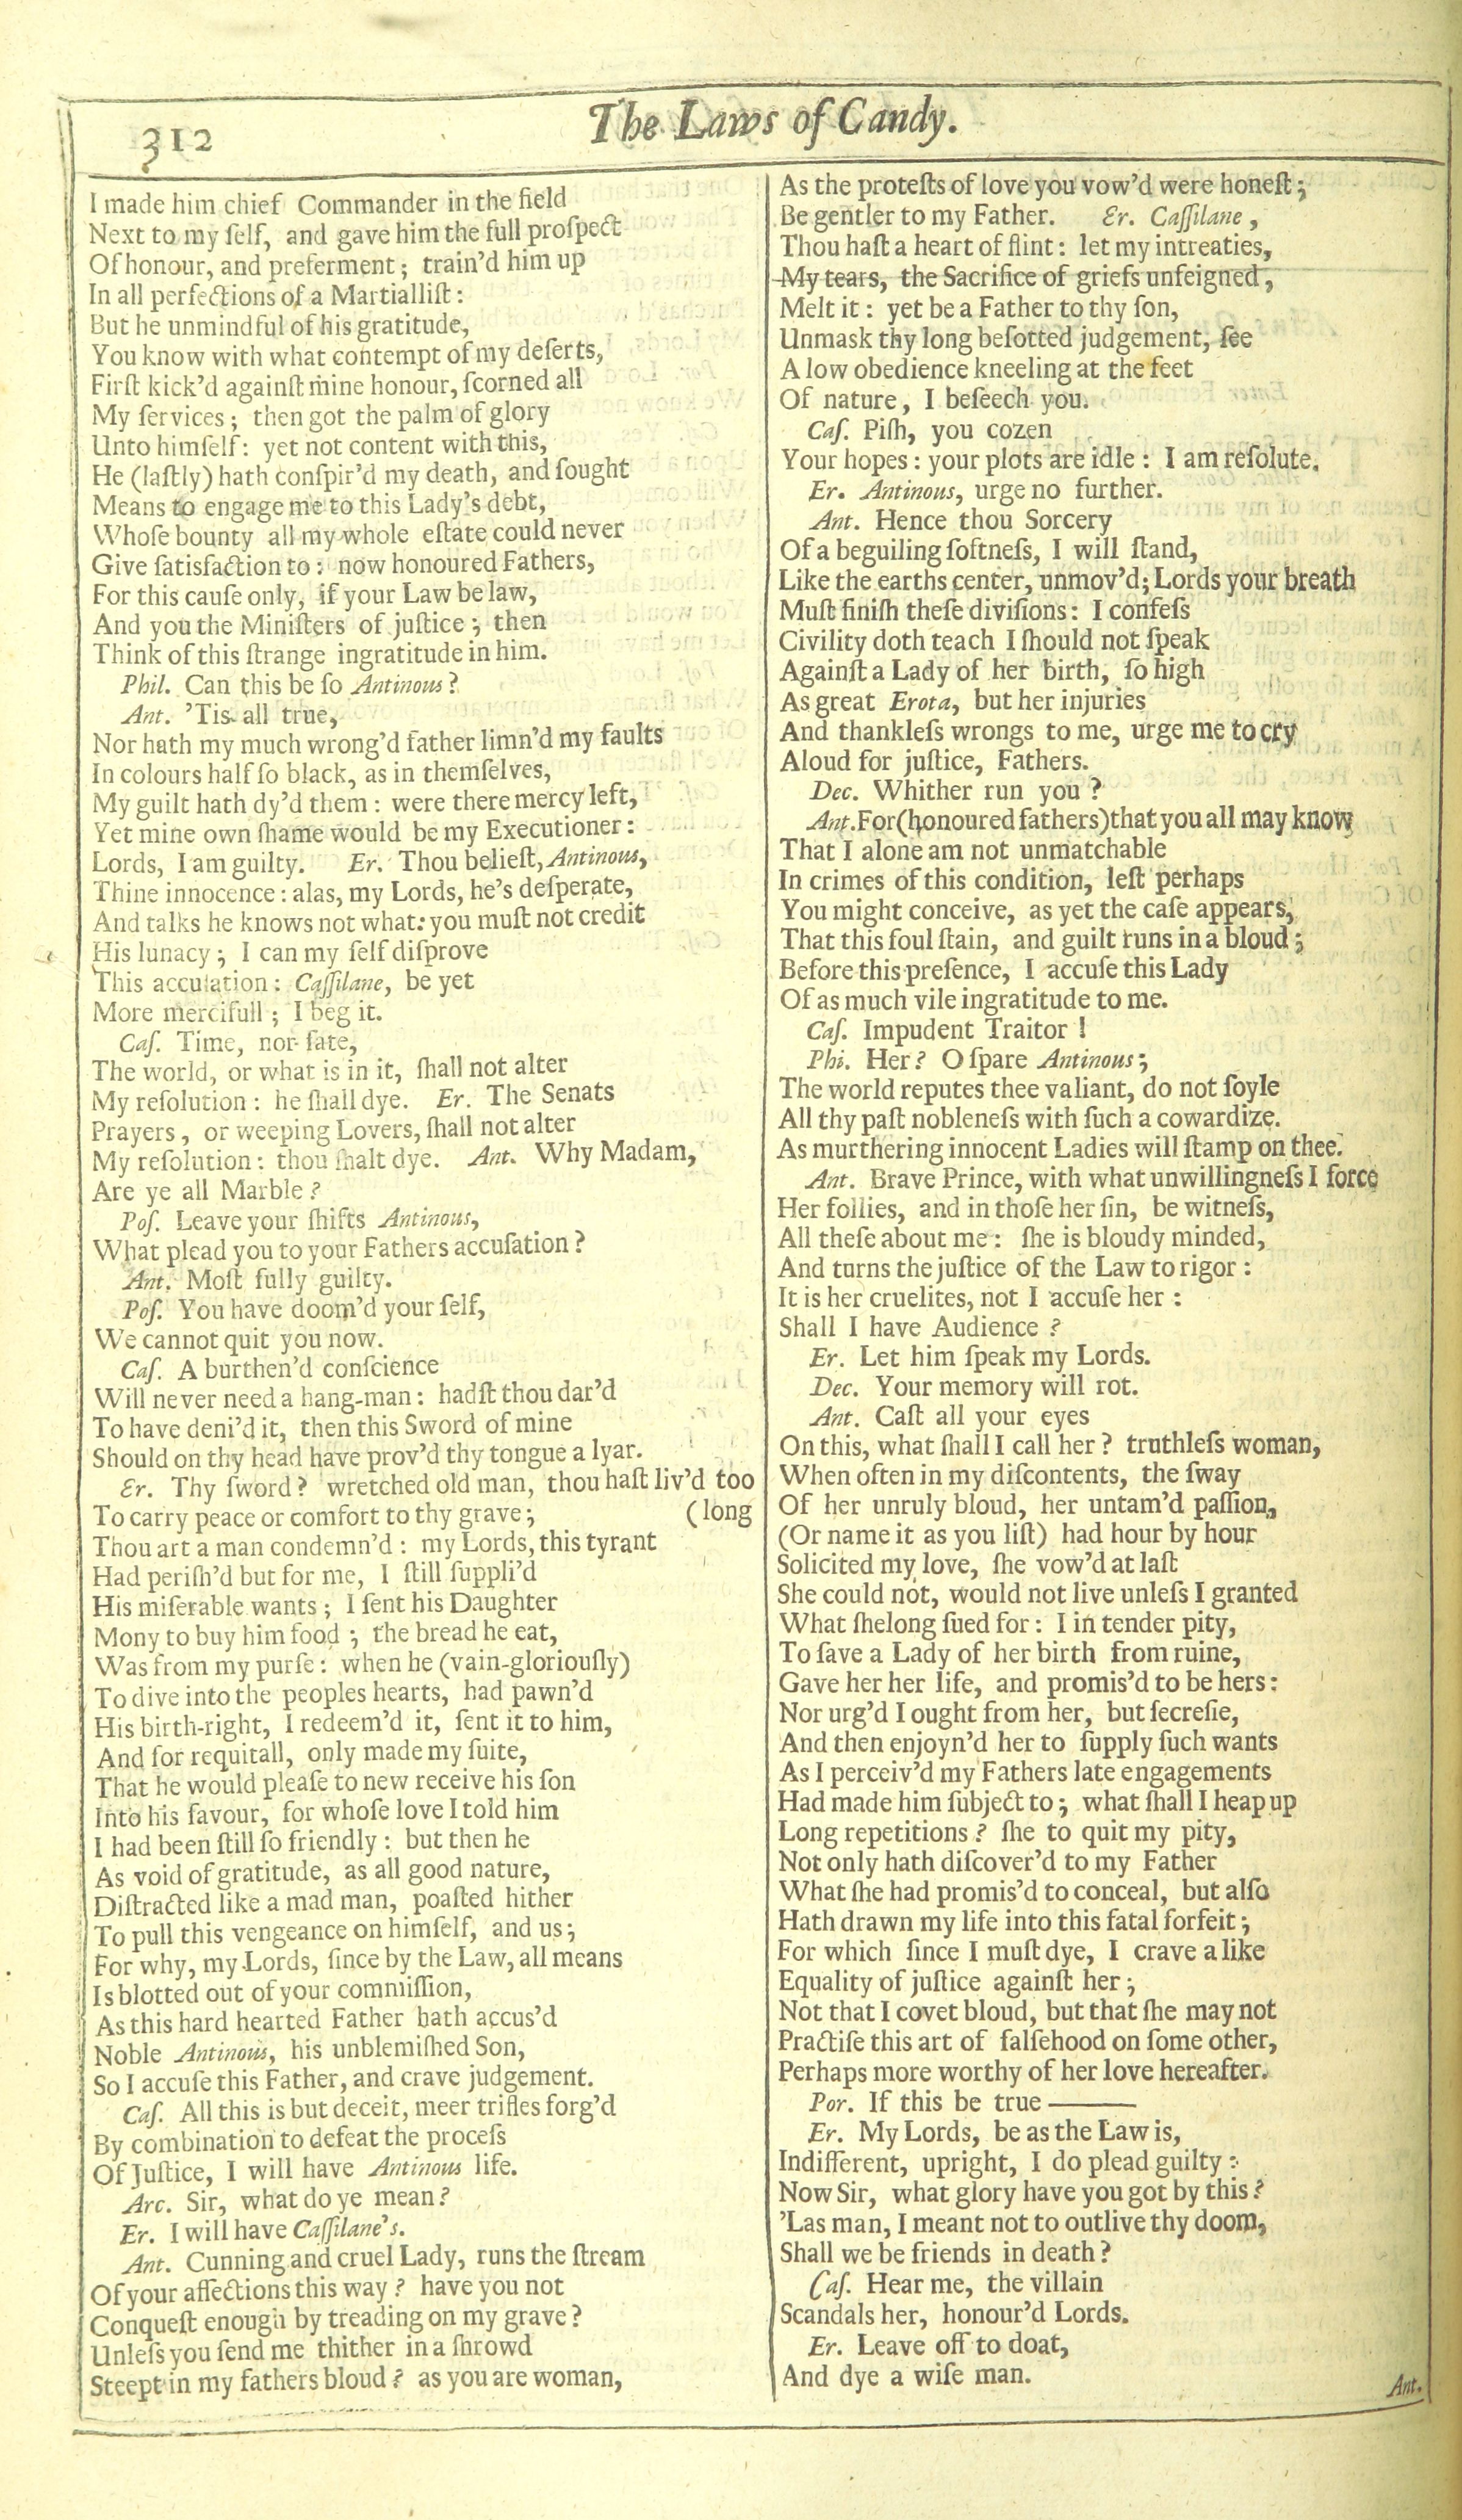 312
The Laws of Candy.
I made him chief Commander in the field
Next to my ſelf, and gave him the full proſpect
Of honour, and preferment; train'd him up
In all perfections of a Martialliſt:
But he unmindful of his gratitude,
You know with what contempt of my deſerts,
Firſt kick'd againſt mine honour, ſcorned all
My ſervices; then got the palm of glory
Unto himſelf: yet not content with this,
He (laſtly) hath conſpir'd my death, and ſought
Means to engage me to this Lady's debt,
Whoſe bounty all my whole eſtate could never
Give ſatisfaction to: now honoured Fathers,
For this cauſe only, if your Law be law,
And you the Miniſters of juſtice; then
Think of this ſtrange ingratitude in him.
Phil. Can this be ſo Antinous?
Ant. 'Tis all true,
Nor hath my much wrong'd father limn'd my faults
In colours half ſo black, as in themſelves,
My guilt hath dy'd them: were there mercy left,
Yet mine own ſhame would be my Executioner:
Lords, I am guilty. Er. Thou belieſt, Antinous,
Thine innocence: alas, my Lords, he's deſperate,
And talks he knows not what: you muſt not credit
His lunacy; I can my ſelf diſprove
This accuſation: Caſſilane, be yet
More mercifull; I beg it.
Caſ. Time, nor fate,
The world, or what is in it, ſhall not alter
My reſolution: he ſhall dye. Er. The Senats
Prayers, or weeping Lovers, ſhall not alter
My reſolution: thou ſhalt dye. Ant. Why Madam,
Are ye all Marble?
Poſ. Leave your ſhifts Antinous,
What plead you to your Fathers accuſation?
Ant. Moſt fully guilty.
Poſ. You have doom'd your ſelf,
We cannot quit you now.
Caſ. A burthen'd conſcience
Will never need a hang-man: hadſt thou dar'd
To have deni'd it, then this Sword of mine
Should on thy head have prov'd thy tongue a lyar.
Er. Thy ſword? wretched old man, thou haſt liv'd too
To carry peace or comfort to thy grave; (long
Thou art a man condemn'd: my Lords, this tyrant
Had periſh'd but for me, I ſtill ſuppli'd
His miſerable wants; I ſent his Daughter
Mony to buy him food; the bread he eat,
Was from my purſe: when he (vain-gloriouſly)
To dive into the peoples hearts, had pawn'd
His birth-right, I redeem'd it, ſent it to him,
And for requitall, only made my ſuite,
That he would pleaſe to new receive his ſon
Into his favour, for whoſe love I told him
I had been ſtill ſo friendly: but then he
As void of gratitude, as all good nature,
Diſtracted like a mad man, poaſted hither
To pull this vengeance on himſelf, and us;
For why, my Lords, ſince by the Law, all means
Is blotted out of your commiſſion,
As this hard hearted Father hath accus'd
Noble Antinous, his unblemiſhed Son,
So I accuſe this Father, and crave judgement.
Caſ. All this is but deceit, meer trifles forg'd
By combination to defeat the proceſs
Of Juſtice, I will have Antinous life.
Arc. Sir, what do ye mean?
Er. I will have Caſſilane's.
Ant. Cunning and cruel Lady, runs the ſtream
Of your affections this way? have you not
Conqueſt enough by treading on my grave?
Unleſs you ſend me thither in a ſhrowd
Steept in my fathers bloud? as you are woman,
As the proteſts of love you vow'd were honeſt;
Be gentler to my Father. Er. Caſſilane,
Thou haſt a heart of flint: let my intreaties,
My tears, the Sacrifice of griefs unfeigned,
Melt it: yet be a Father to thy ſon,
Unmask thy long beſotted judgement, ſee
A low obedience kneeling at the feet
Of nature, I beſeech you.
Caſ. Piſh, you cozen
Your hopes: your plots are idle: I am reſolute.
Er. Antinous, urge no further.
Ant. Hence thou Sorcery
Of a beguiling ſoftneſs, I will ſtand,
Like the earths center, unmov'd; Lords your breath
Muſt finiſh theſe diviſions: I confeſs
Civility doth teach I ſhould not ſpeak
Againſt a Lady of her birth, ſo high
As great Erota, but her injuries
And thankleſs wrongs to me, urge me to cry
Aloud for juſtice, Fathers.
Dec. Whither run you?
Ant. For (honoured fathers) that you all may know
That I alone am not unmatchable
In crimes of this condition, leſt perhaps
You might conceive, as yet the caſe appears,
That this foul ſtain, and guilt runs in a bloud;
Before this preſence, I accuſe this Lady
Of as much vile ingratitude to me.
Caſ. Impudent Traitor!
Phi. Her? O ſpare Antinous;
The world reputes thee valiant, do not ſoyle
All thy paſt nobleneſs with ſuch a cowardize.
As murthering innocent Ladies will ſtamp on thee.
Ant. Brave Prince, with what unwillingneſs I force
Her follies, and in thoſe her ſin, be witneſs,
All theſe about me: ſhe is bloudy minded,
And turns the juſtice of the Law to rigor:
It is her cruelites, not I accuſe her:
Shall I have Audience?
Er. Let him ſpeak my Lords.
Dec. Your memory will rot.
Ant. Caſt all your eyes
On this, what ſhall I call her? truthleſs woman,
When often in my diſcontents, the ſway
Of her unruly bloud, her untam'd paſſion,
(Or name it as you liſt) had hour by hour
Solicited my love, ſhe vow'd at laſt
She could not, would not live unleſs I granted
What ſhe long ſued for: I in tender pity,
To ſave a Lady of her birth from ruine,
Gave her her life, and promis'd to be hers:
Nor urg'd I ought from her, but ſecreſie,
And then enjoyn'd her to ſupply ſuch wants
As I perceiv'd my Fathers late engagements
Had made him ſubject to; what ſhall I heap up
Long repetitions? ſhe to quit my pity,
Not only hath diſcover'd to my Father
What ſhe had promis'd to conceal, but alſo
Hath drawn my life into this fatal forfeit;
For which ſince I muſt dye, I crave a like
Equality of juſtice againſt her;
Not that I covet bloud, but that ſhe may not
Practiſe this art of falſehood on ſome other,
Perhaps more worthy of her love hereafter.
Por. If this be true ———
Er. My Lords, be as the Law is,
Indifferent, upright, I do plead guilty:
Now Sir, what glory have you got by this?
'Las man, I meant not to outlive thy doom,
Shall we be friends in death?
Caſ. Hear me, the villain
Scandals her, honour'd Lords.
Er. Leave off to doat,
And dye a wiſe man.
Ant.